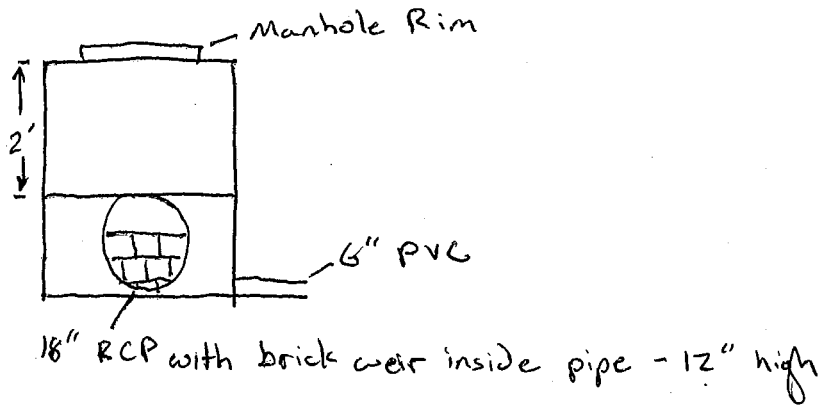 Manhole Rim
2'
6" PVC
18" RCP with brick weir inside pipe - 12" high